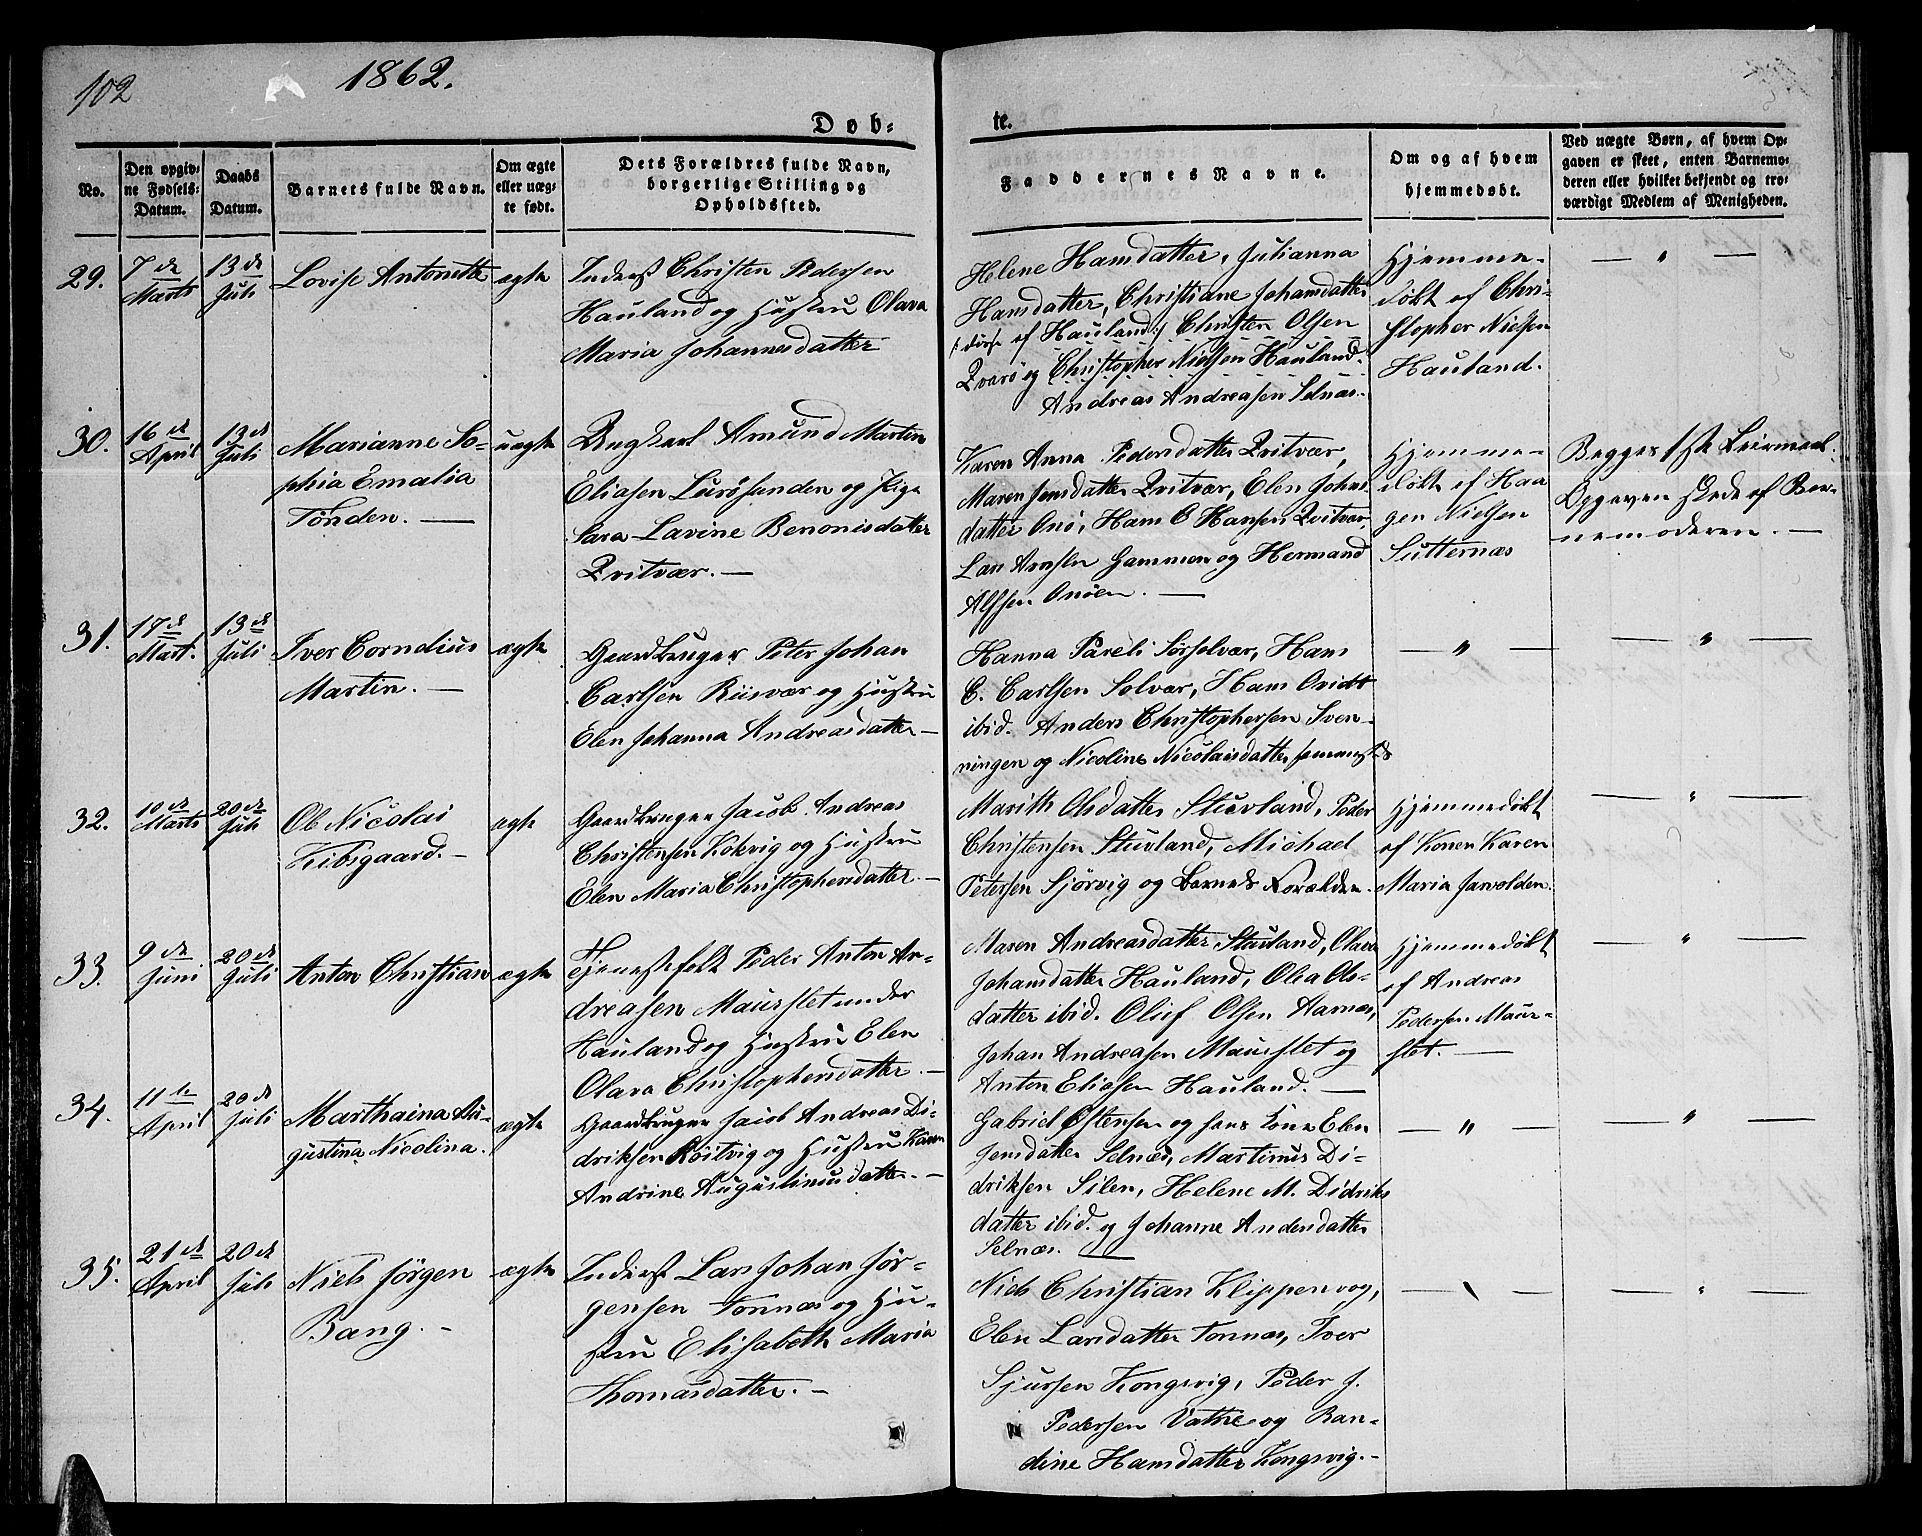 102
1862.
Døb=
te.
No.
Den opgiv=
ne Fødsels=
Datum.
Daabs
Datum.
Barnets fulde Navn.
Om ægte
eller uæg=
te født.
Dets Forældres fulde Navn,
borgerlige Stilling og
Opholdssted.
Faddernes Navne.
Om og af hvem
hjemmedøbt.
Ved uægte Børn, af hvem Op=
gaven er skeet, enten Barnemo=
deren eller hvilket bekjendt og tro=
værdigt Medlem af Menigheden.
29.
7de
Marts
13de
Juli
Lovise Antonette
ægte
Inderst Christen Pedersen
Hauland og Hustru Olava
Maria Johannesdatter
Helene Hansdatter, Julianna
Hansdatter, Christiane Johansdatter
/: disse af Hauland :/ Christen Olsen
Qvarø og Christopher Nielsen Hauland.
Andreas Andreasen Selnæs.
Hjemme-
døbt af Chri-
stopher Nielsen
Hauland.
— " —
30.
16de
April
13de
Juli
Marianne So-
phia Emalia
Tønden. —
uægte
Ungkarl Amund Martin
Eliasen Lurøsunden og Pige
Sara Lavine Benonisdatter
Qvitvær. —
Karen Anna Pedersdatter Qvitvær,
Maren Jensdatter Qvitvær, Elen Johns
datter Onø, Hans O Hansen Qvitvær,
Lars Arnsen Gammen og Hermand
Alfsen Onøen. —
Hjemme-
døbt af Haa
gen Nielsen
Sutternæs
Begges 1ste Leiermaal.
Opgaven skede af Bar-
nemoderen. —
31.
17de
Mart.
13de
Juli
Iver Cornelius
Martin. —
ægte
Gaardbruger Peter Johan
Carlsen Riisvær og Hustru
Elen Johanna Andreasdatter —
Hanna Pareli Sørsolvær, Hans
C. Carlsen Solvær, Hans Ovidt
ibid. Anders Christophersen Sven-
ningen og Nicoline Nicolaisdatter
— " —
— " —
32.
10de
Marts
20de
Juli
Ole Nicolai
Kibsgaard. —
ægte
Gaardbruger Jacob Andreas
Christensen Kokvig og Hustru
Elen Maria Christophersdatter. —
Marith Olsdatter Stuvland, Peder
Christensen Stuvland, Michael
Petersen Sjørvig og Barnets Forældre.
Hjemmedøbt
af Konen Karen
Maria Jarvolden.
— " —
33.
9de
Juni
20de
Juli
Anton Christian
ægte
Tjenestefolk Peder Anton An-
dreasen Maurslet under
Hauland og Hustru Elen
Olava Christophersdatter. —
Maren Andreasdatter Stuvland, Olava
Johansdatter Hauland, Olea Ols-
datter ibid. Oluf Olsen Aarnes,
Johan Andreasen Maurslet og
Anton Eliasen Hauland. —
Hjemmedøbt
af Andreas
Pedersen Maur-
slet. —
— " —
34.
11te
April
20de
Juli
Marthaina Au-
gustina Nicolina.
ægte
Gaardbruger Jacob Andreas Di-
driksen Røitvig og Hustru Karen
Andrine Augustinusdatter. —
Gabriel Østensen og hans Kone Elen
Jensdatter Selnæs, Martinus Di-
driksen Silen, Helene M. Didriks
datter ibid. og Johanne Andersdatter
Selnæs. —
— " —
— " —
35.
21de
April
20de
Juli
Niels Jörgen
Bang. —
ægte
Inderst Lars Johan Jør-
gensen Tonnæs og Hu-
stru Elisabeth Maria
Thomasdatter. —
Niels Christian Klippenvog,
Elen Larsdatter Tonnæs, Iver
Sjursen Kongsvig, Peder J.
Pedersen Vatne og Ran-
dine Hansdatter Kongsvig. —
— " —
— " —